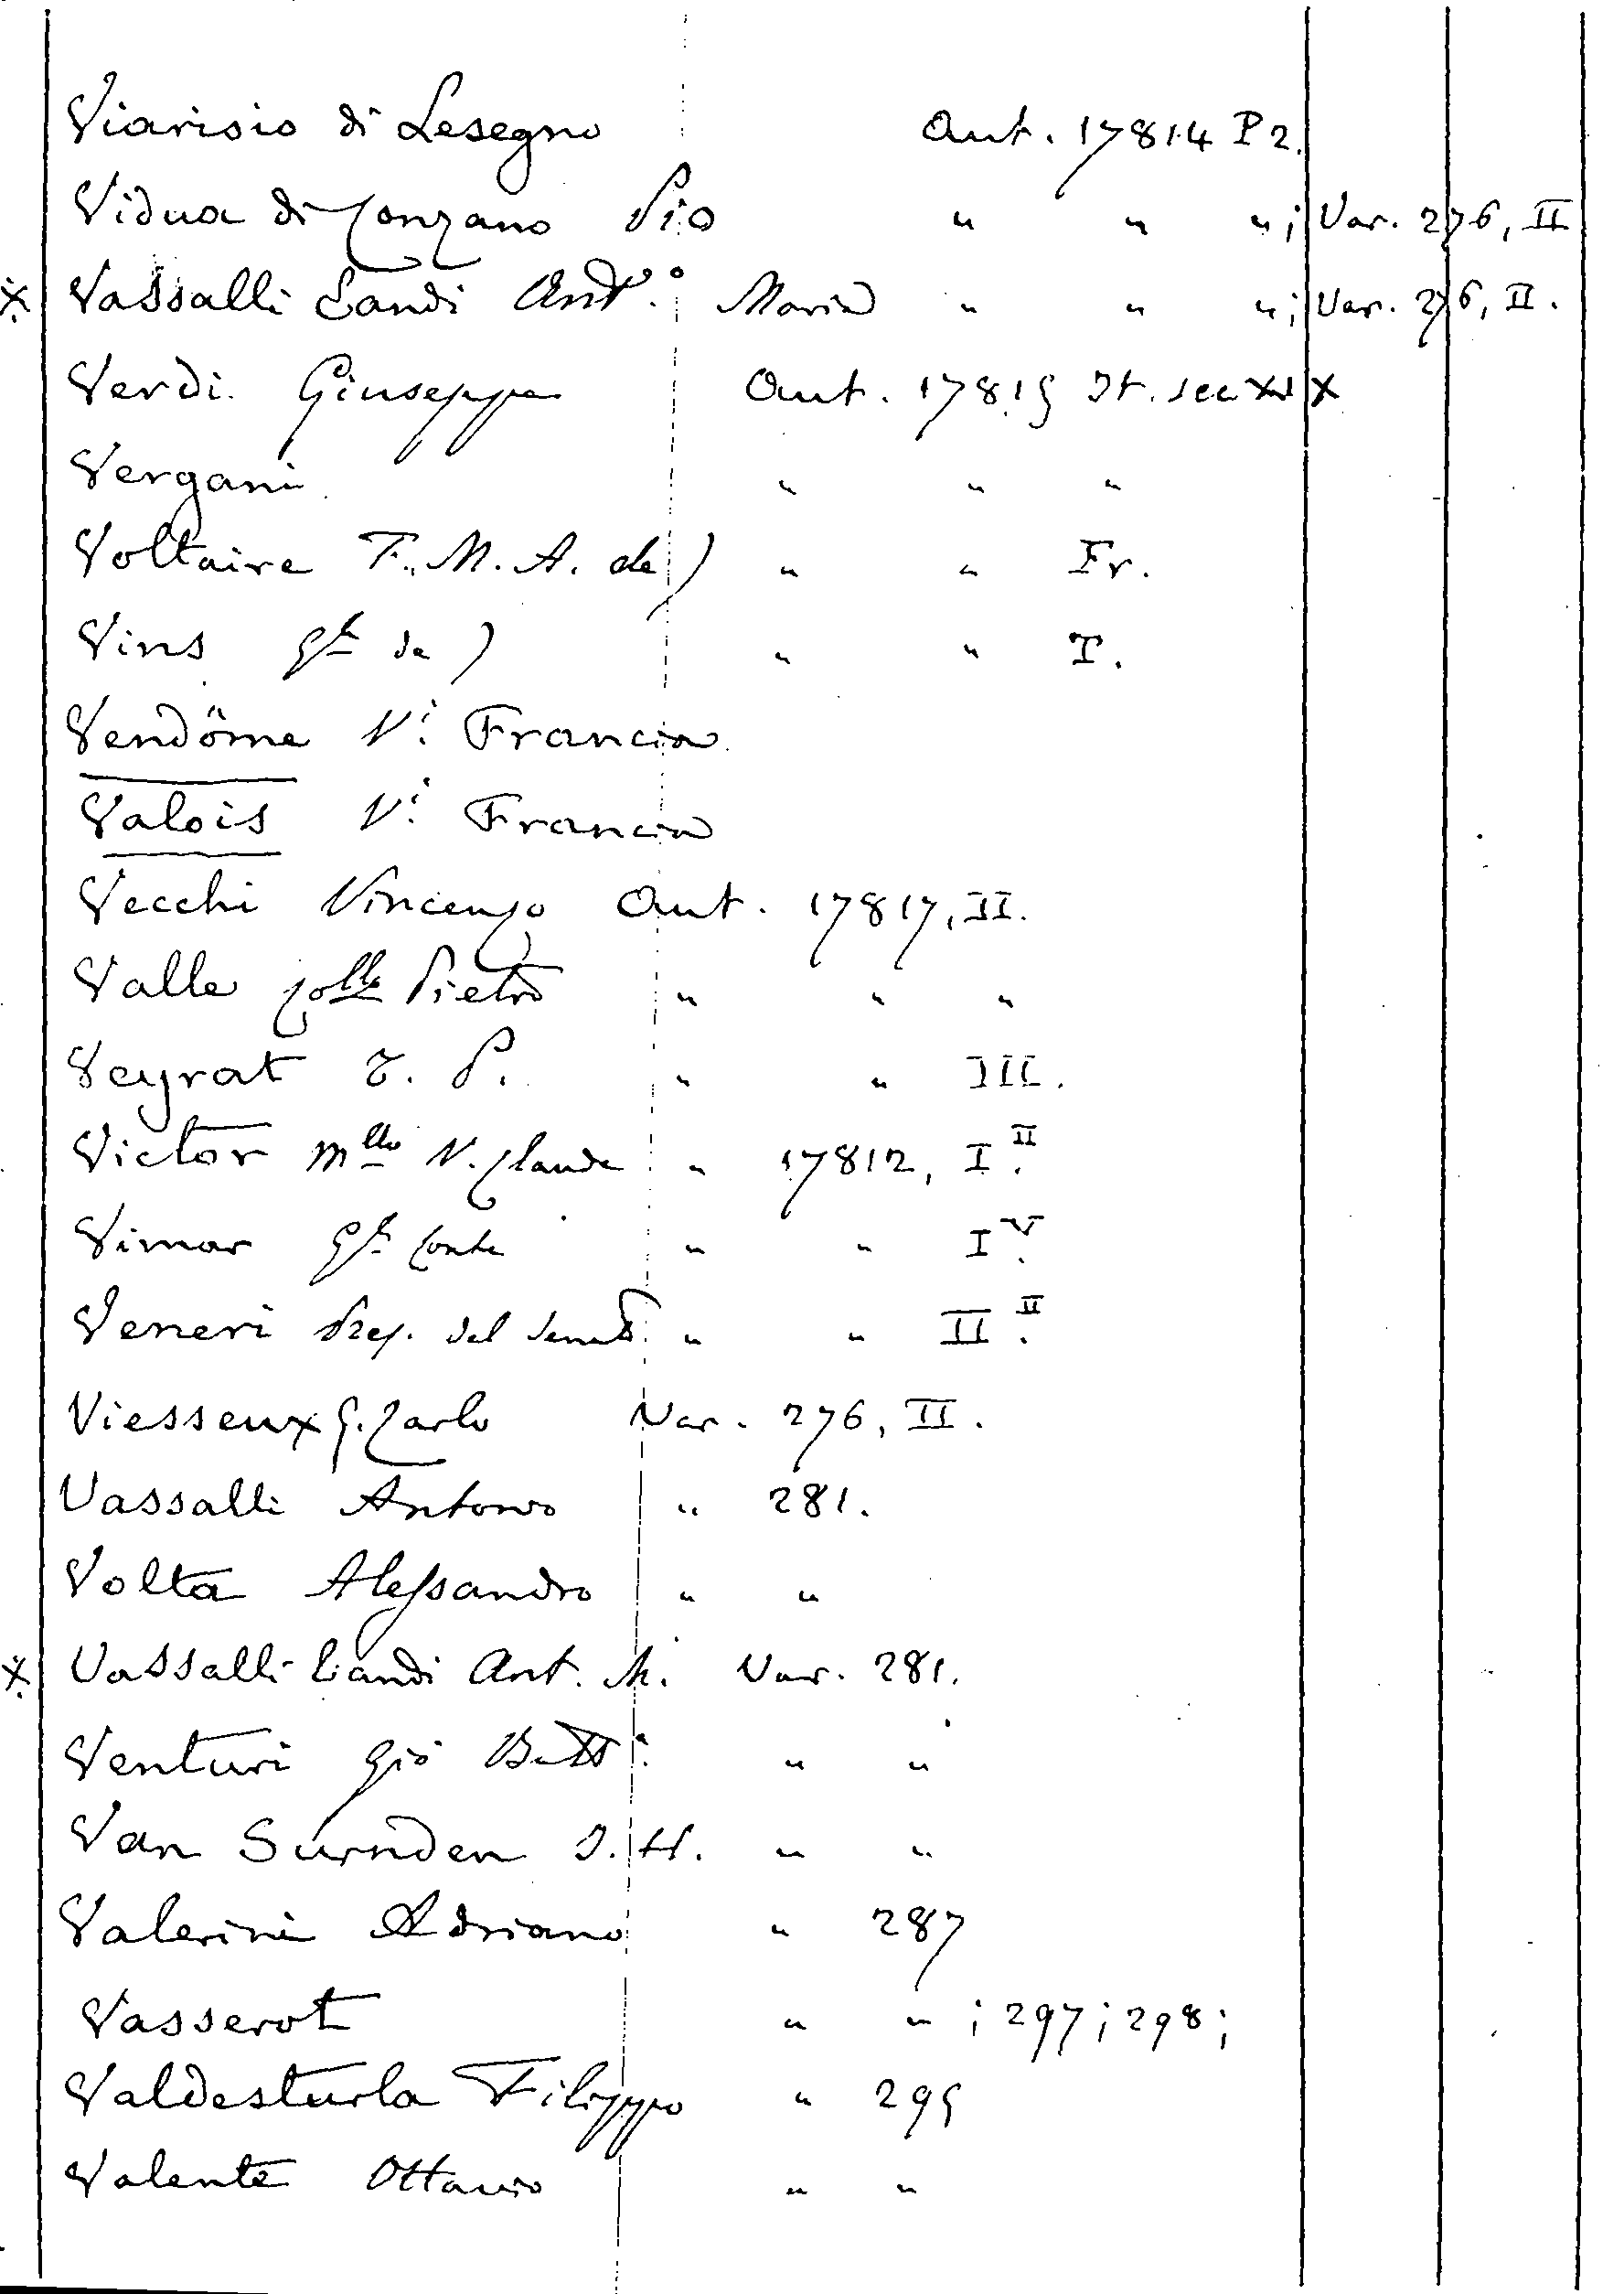 Viarisio di Lesegno Aut. 17814 P2.
Vidua di Conzano Pio " " "; Var. 276, II
x Vassalli Eandi Antº. Maria " " "; Var. 276, II.
Verdi Giuseppe Aut. 17815 It. sec XIX
Vergani " " "
Voltaire F. M. A. de) " " Fr.
Vins Gle de) " " T.
Vendôme Vi. Francia
Valois Vi. Francia
Vecchi Vincenzo Aut. 17817, II.
Valle Colle Pietro " " "
Veyrat T. P. " " III.
Victor Mllo V. Claude " 17812, I.II
Vimar Gle Conte " " I.V
Veneri Pres. del Senato " " II.II
Viesseux G. Carlo Var. 276, II.
Vassalli Antonio " 281.
Volta Alessandro " "
x Vassalli-Eandi Ant. M. Var. 281.
Venturi Gio Batta. " "
Van Surnden J. H. " "
Valerini Adriano " 287
Vasserot " "; 297; 298;
Valdesturla Filippo " 295
Valente Ottavio " "